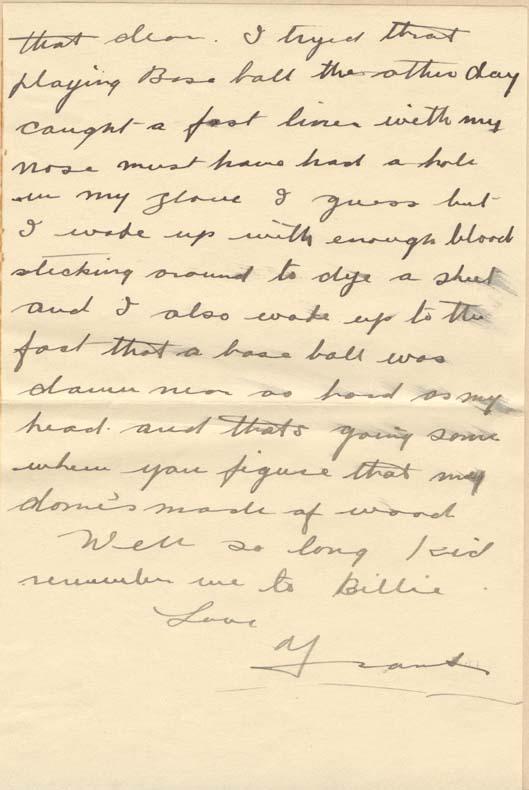 that dear. I tryed that
playing Base ball the other day
caught a fast liner with my
nose must have had a hole
in my glove I guess but
I woke up with enough blood
sticking around to dye a sheet
and I also woke up to the
fact that a base ball was
damn near as hard as my
head. and thats going some
when you figure that my
dome's made of wood
Well so long Kid
remember me to Billie.
Love
Grant